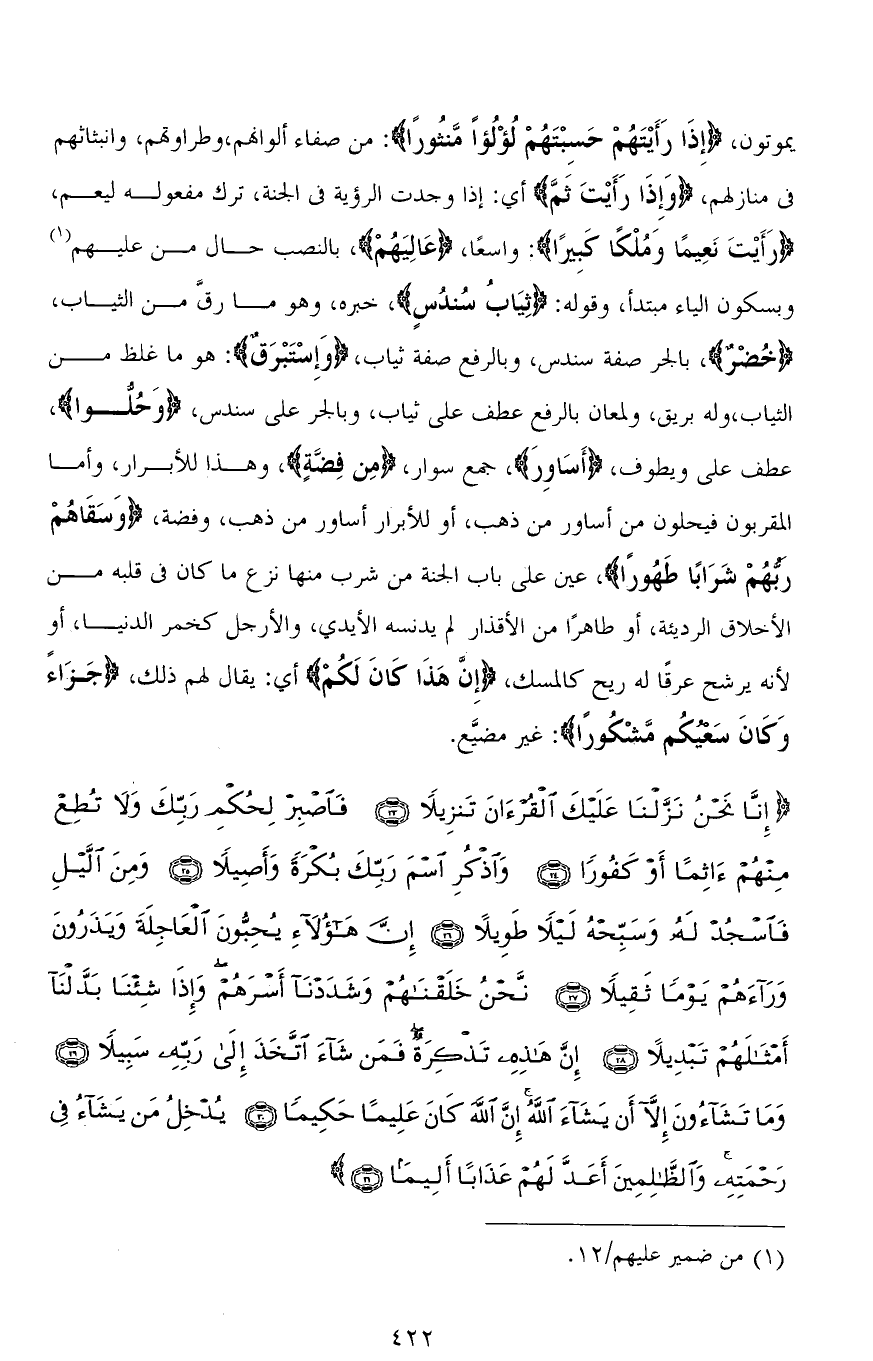 يموتون، ﴿إِذَا رَأَيْتَهُمْ حَسِبْتَهُمْ لُؤْلُؤاً مَّنثُورًا﴾: من صفاء ألوانهم،وطراوتهم، وانبثاثهم
فى منازلهم، ﴿وَإِذَا رَأَيْتَ ثَمَّ﴾ أي: إذا وجدت الرؤية فى الجنة، ترك مفعولـــه ليعـــم،
﴿رَأَيْتَ نَعِيمًا وَمُلْكًا كَبِيرًا﴾: واسعًا، ﴿عَالِيَهُمْ﴾، بالنصب حـــال مـــن عليـــهم(١)
وبسكون الياء مبتدأ، وقوله: ﴿ثِيَابُ سُندُسٍ﴾، خبره، وهو مـــا رقَّ مـــن الثيـــاب،
﴿خُضْرٌ﴾، بالجر صفة سندس، وبالرفع صفة ثياب، ﴿وَإِسْتَبْرَقٌ﴾: هو ما غلظ مـــن
الثياب،وله بريق، ولمعان بالرفع عطف على ثياب، وبالجر على سندس، ﴿وَحُلُّـــوا﴾،
عطف على ويطوف، ﴿أَسَاوِرَ﴾، جمع سوار، ﴿مِن فِضَّةٍ﴾، وهـــذا للأبـــرار، وأمـــا
المقربون فيحلون من أساور من ذهب، أو للأبرار أساور من ذهب، وفضة، ﴿وَسَقَاهُمْ
رَبُّهُمْ شَرَابًا طَهُورًا﴾، عين على باب الجنة من شرب منها نزع ما كان فى قلبه مـــن
الأخلاق الرديئة، أو طاهرًا من الأقذار لم يدنسه الأيدي، والأرجل كخمر الدنيـــا، أو
لأنه يرشح عرقًا له ريح كالمسك، ﴿إِنَّ هَذَا كَانَ لَكُمْ﴾ أي: يقال لهم ذلك، ﴿جَـزَاءً
وَكَانَ سَعْيُكُم مَّشْكُورًا﴾: غير مضيَّع.
﴿ إِنَّا نَحْنُ نَزَّلْنَا عَلَيْكَ ٱلْقُرْءَانَ تَنزِيلًا ٢٣ فَٱصْبِرْ لِحُكْمِ رَبِّكَ وَلَا تُطِعْ
مِنْهُمْ ءَاثِمًا أَوْ كَفُورًا ٢٤ وَٱذْكُرِ ٱسْمَ رَبِّكَ بُكْرَةً وَأَصِيلًا ٢٥ وَمِنَ ٱلَّيْلِ
فَٱسْجُدْ لَهُۥ وَسَبِّحْهُ لَيْلًا طَوِيلًا ٢٦ إِنَّ هَٰٓؤُلَآءِ يُحِبُّونَ ٱلْعَاجِلَةَ وَيَذَرُونَ
وَرَآءَهُمْ يَوْمًا ثَقِيلًا ٢٧ نَّحْنُ خَلَقْنَٰهُمْ وَشَدَدْنَآ أَسْرَهُمْ ۖ وَإِذَا شِئْنَا بَدَّلْنَآ
أَمْثَٰلَهُمْ تَبْدِيلًا ٢٨ إِنَّ هَٰذِهِۦ تَذْكِرَةٌ ۖ فَمَن شَآءَ ٱتَّخَذَ إِلَىٰ رَبِّهِۦ سَبِيلًا ٢٩
وَمَا تَشَآءُونَ إِلَّآ أَن يَشَآءَ ٱللَّهُ ۚ إِنَّ ٱللَّهَ كَانَ عَلِيمًا حَكِيمًا ٣٠ يُدْخِلُ مَن يَشَآءُ فِى
رَحْمَتِهِۦ ۚ وَٱلظَّٰلِمِينَ أَعَدَّ لَهُمْ عَذَابًا أَلِيمًۢا ٣١ ﴾
(١) من ضمير عليهم/١٢.
٤٢٢